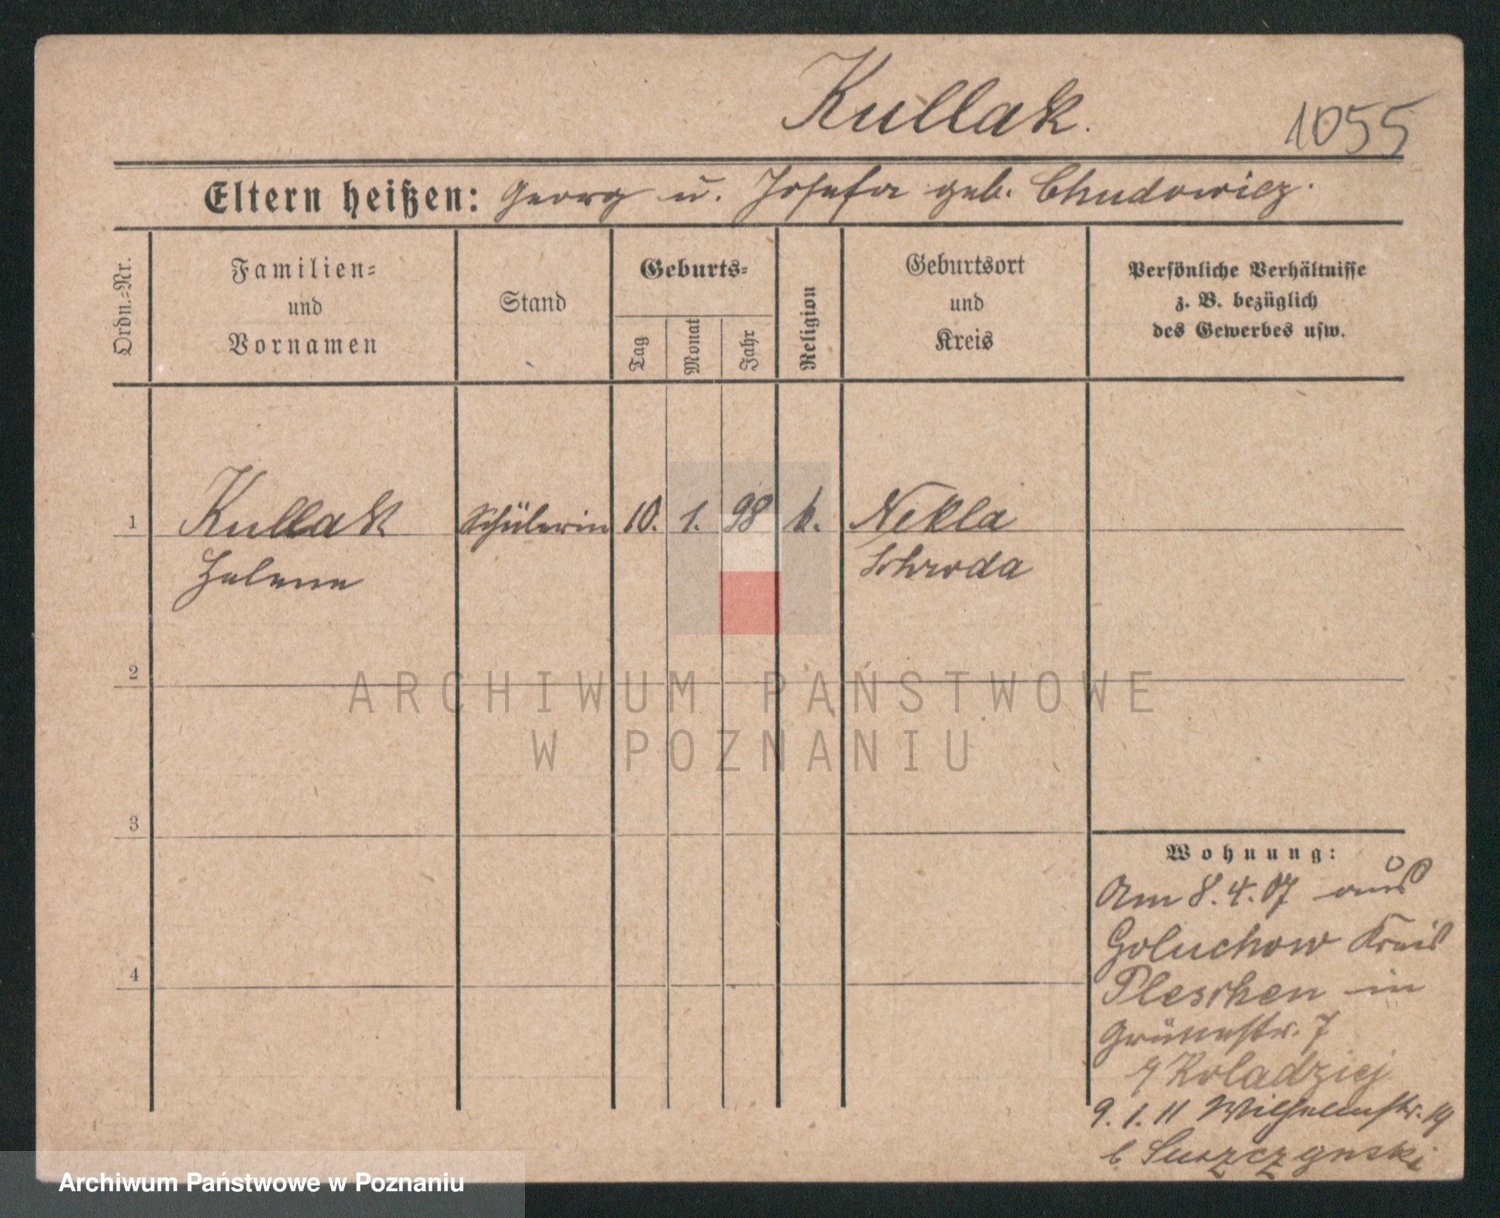 Kullak.
1055
Eltern heißen: Georg u. Josefa geb. Chudowicz.
Ordn.=Nr.
Familien=
und
Vornamen
Stand
Geburts=
Tag
Monat
Jahr
Religion
Geburtsort
und
Kreis
Persönliche Verhältnisse
z. B. bezüglich
des Gewerbes usw.
1 Kullak Schülerin 10. 1. 98 k. Nekla
Helene Schroda
2
ARCHIWUM PAŃSTWOWE
W POZNANIU
3
Wohnung:
Am 8.4.07 aus
Goluchow Kreis
Pleschen in
4
Grünestr. 7
Koladziej
9.1.11 Wilhelmstr. 19
b. Suszczynski
Archiwum Państwowe w Poznaniu